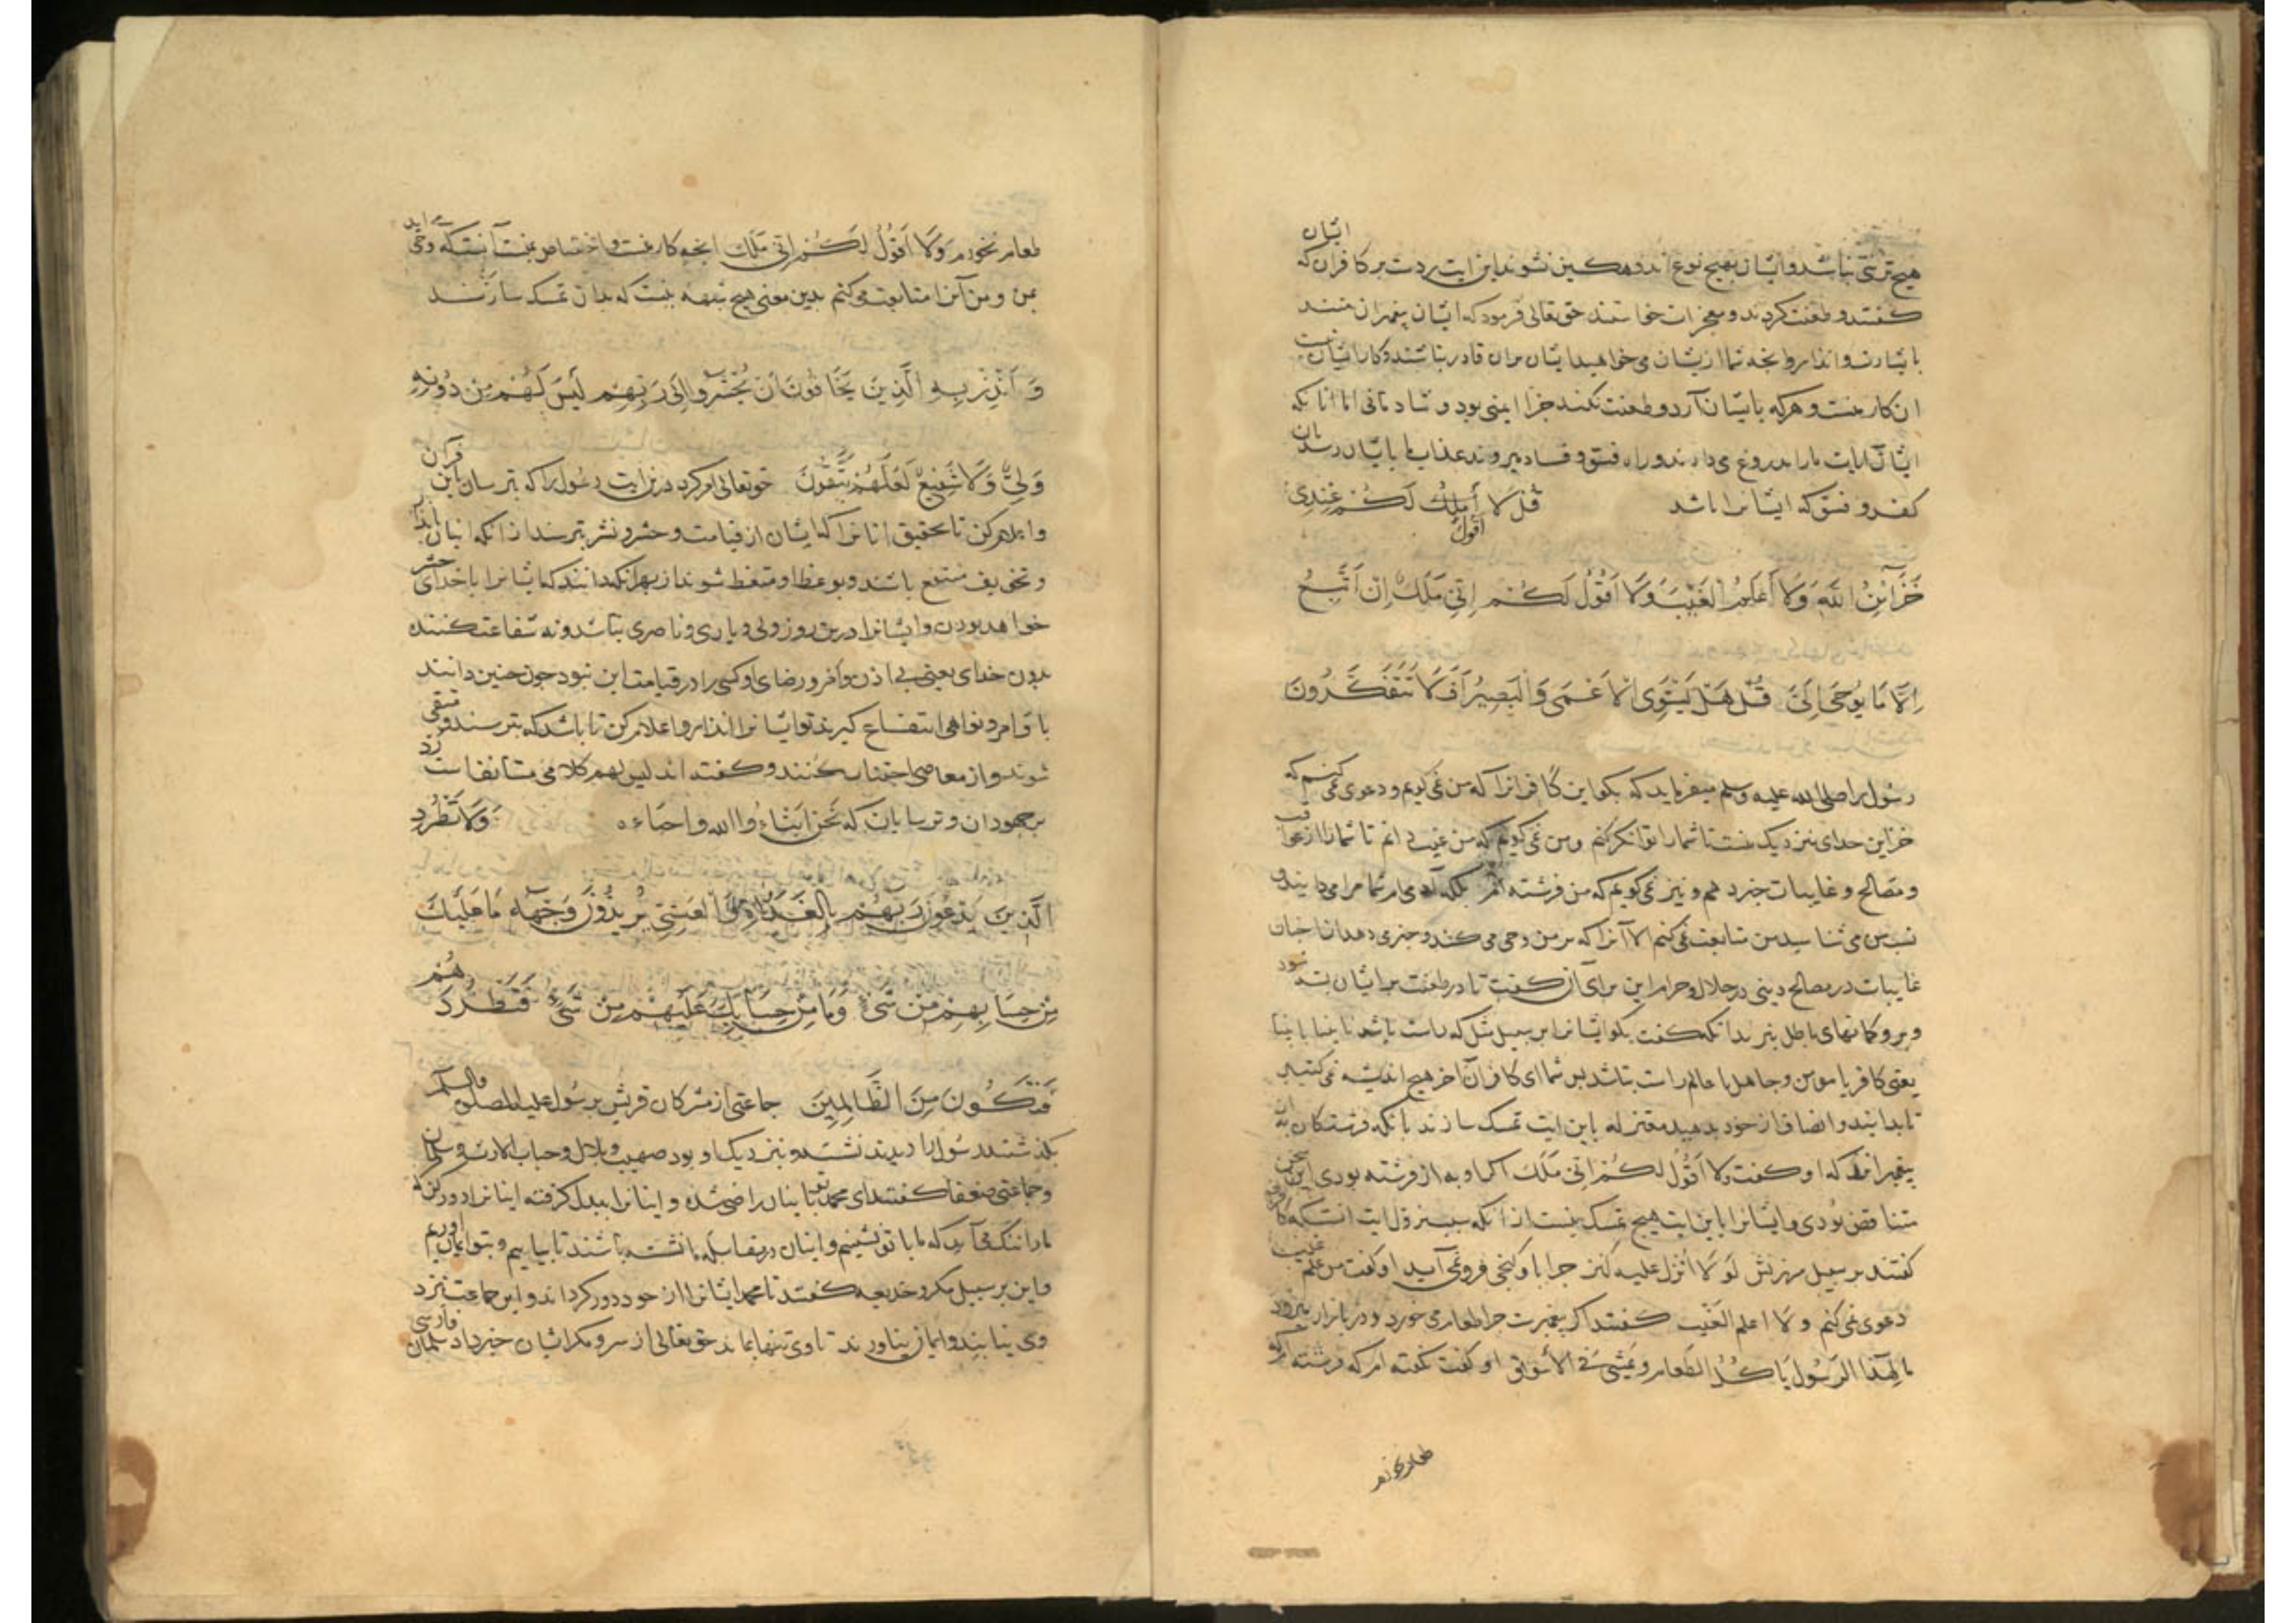 هیچ ترسی نباشد و ایشان بهیچ نوع اندوهکین نشوند این ایت ردست بر کافران که ایشان
کفتند و طعنت کردند و معجزات خواستند حق تعالی فرمود که ایشان پیغمبران منند
با بشارت و انذار و انجه شما از ایشان می خواهید ایشان بران قادر نباشند و کار ایشان نیست
ان کار منست و هرکه بایشان آرد و طعنت نکند جزا ایمنی بود و شادمانی اما انانکه
ایشان ایات مارا بدروغ می دارند و راه فسق و فساد میروند عذاب ما بایشان رسد بان
کفر و فسق که ایشانرا باشد قُل لَا أَمْلِكُ أقول لَكُمْ عِنْدِی
خَزَآئِنُ اللَّهِ وَلَا أَعْلَمُ الْغَيْبَ وَلَا أَقُولُ لَكُمْ إِنِّي مَلَكٌ إِنْ أَتَّبِعُ
إِلَّا مَا يُوحَى إِلَيَّ قُلْ هَلْ يَسْتَوِي الْأَعْمَى وَالْبَصِيرُ أَفَلَا تَتَفَكَّرُونَ
رسول را صلی الله علیه وسلم میفرماید که بکو این کافرانرا که من نمی کویم و دعوی نمی کنم که
خزاین خدای بنزدیک منست تا شمارا توانکر کنم و من نمی کویم که من غیب دانم تا شمارا از عواقب
و مصالح و غایبات خبر دهم و نیز نمی کویم که من فرشته ام بلکه آدمی ام شما مرا می دانید و
نسب من می شناسید من متابعت نمی کنم الا آنرا که بر من وحی می کند و خبر می دهد از اخبار
غایبات در مصالح دینی در حلال و حرام این برای آن کفت تا در طعنت بر ایشان بسته شود
و بر و کمانهای باطل نبرند انکه کفت بکو ایشانرا بر سبیل مثل که راست باشد نابینا با بینا
یعنی کافر با مومن و جاهل با عالم راست باشد پس شما ای کافران آخر هیچ اندیشه نمی کنید
تا بدانید و انصاف از خود بدهید معتزله باین ایت تمسک سازند بانکه فرشتکان به از
پیغمبر که او کفت ولا أقول لکم انی ملک اکر او به از فرشته بودی این سخن
متناقض بودی و ایشانرا باین ایت هیچ تمسک نیست از انکه سبب نزول ایت انست که کافران
کفتند بر سبیل سرزنش لَو لَا أُنزل علیه کنز جرا با او کنجی فرو نمی آید او کفت من علم غیب
دعوی نمی کنم ولا اعلم الغَیْب کفتند اکر پیغمبرست جرا طعام می خورد و در بازار میرود
مَا لِهَذَا الرَّسُولِ يَأْكُلُ الطَّعَامَ وَيَمْشِي فِي الْأَسْوَاقِ او کفت نکفته ام که فرشته ام که
طعام نخورم
طعام نخورم وَلَا أَقُولُ لَكُمْ إِنِّي مَلَكٌ انجه کار منست و اختصاص منست آنست که وحی آید
بمن و من آنرا متابعت می کنم بدین معنی هیچ شبهه نیست که بدان تمسک سازند
وَأَنْذِرْ بِهِ الَّذِينَ يَخَافُونَ أَنْ يُحْشَرُوا إِلَى رَبِّهِمْ لَيْسَ لَهُمْ مِنْ دُونِهِ
وَلِيٌّ وَلَا شَفِيعٌ لَعَلَّهُمْ يَتَّقُونَ حق تعالی امر کرد درین ایت رسول را که بترسان باین قرآن
و اعلام کن تا بحقیق انانرا که ایشان از قیامت و حشر و نشر بترسند از انکه ایشان بانذار
و تخویف منتفع باشند و بوعظ او متعظ شوند از بهر انکه دانند که ایشانرا با خدای حشر
خواهد بودن و ایشانرا درین روز ولی و یاری و ناصری نباشد و نه شفاعت کننده
بدون خدای یعنی بی اذن و امر و رضای او کسی را در قیامت این نبود جون جنین دانند
باوامر و نواهی انتفاع کیرند تو ایشانرا انذار و اعلام کن تا باشد که بترسند و متقی
شوند و از معاصی اجتناب کنند و کفته اند لیس لهم کلامی مستانفست رد
بر جهودان و ترسایان که نَحْنُ ابْنَاءُ الله واحباءه وَلَا تَطْرُدِ
الَّذِينَ يَدْعُونَ رَبَّهُمْ بِالْغَدَاةِ وَالْعَشِيِّ يُرِيدُونَ وَجْهَهُ مَا عَلَيْكَ
مِنْ حِسَابِهِمْ مِنْ شَيْءٍ وَمَا مِنْ حِسَابِكَ عَلَيْهِمْ مِنْ شَيْءٍ فَتَطْرُدَهُمْ
فَتَكُونَ مِنَ الظَّالِمِينَ جماعتی از مشرکان قریش بر رسول علیه الصلوة والسلم
بکذشتند رسول را دیدند نشسته و بنزدیک او بود صهیب و بلال و خباب الارت و سلمان
و جماعتی ضعفا کفتند ای محمد باینان راضی شده و اینانرا بدل کرفته اینانرا دور کن که
مارا ننک می آید که ما با تو نشینیم و اینان در مقابله ما نشسته باشند تا بیاییم و بتو ایمان آوریم
و این بر سبیل مکر و خدیعه کفتند تا محمد ایشانرا از خود دور کرداند و این جماعت نزد
وی نیایند و ایمان نیاورند تا وی تنها بماند حق تعالی از سر و مکر ایشان خبر داد سلمان فارسی